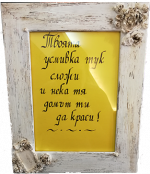 Твоята
усмивка тук
сложи
и нека тя
домът ти
да краси!